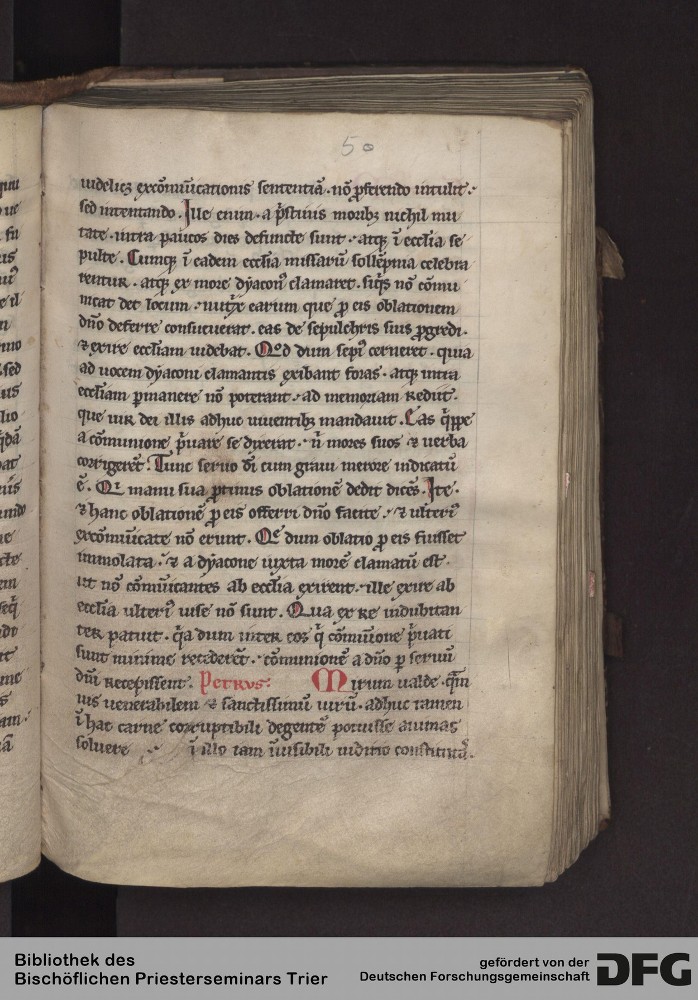 50
uidelicꝫ exco͞mu͞icationis sententiā · nō ꝓferendo intulit ·
sed intentando · Ille enim · a pͥstinis moribꝫ nichil mu
tate · intra paucos dies defuncte sunt · atqꝫ ī eccl̄ia se
pulte · Cumqꝫ ī eadem eccl̄ia missarū sollēpnia celebra
rentur · atqꝫ ex more dyacon᷒ clamaret · siqͥs nō cōmu
nicat det locum · nutⁱx earum que ꝓ eis oblationem
dn̄o deferre consueuerat · eas de sepulchris suis ꝓgredi ·
⁊ exire eccl̄iam uidebat · Qd̄ dum sepi᷒ cerneret · quia
ad uocem dyaconi clamantis exibant foras · atqꝫ intra
eccl̄iam ꝑmanere nō poterant · ad memoriam rediit ·
que uir dei illis adhuc uiuentibꝫ mandauit · Eas qͥppe
a cōmunione pͥuare se dixerat · n̄ mores suos ⁊ uerba
corrigerēt · Tunc seruo dī cum graui merore indicatū
ē · Qͥ manu sua ꝓtinus oblationē dedit dicēs · Ite ·
⁊ hanc oblationē ꝓ eis offerri dn̄o facite · ⁊ ulteri᷒
excōmu͞icate nō erunt · Qͤ dum oblatio ꝓ eis fuisset
immolata · ⁊ a dyacone iuxta morē clamatū est ·
ut nō cōmu͞icantes ab eccl̄ia exirent · ille exire ab
eccl̄ia ulteri᷒ uise nō sunt · Qua ex re indubitan
ter patuit · qͣa dum inter eos qͥ cōmu͞ione pͥuati
sunt minime recederēt · cōmunionē a dn̄o ꝑ seruū
dn̄i recepissent · Petrus · Mirum ualde · qͣm
uis uenerabilem ⁊ sanctissimū uirū · adhuc tamen
ī hac carne corruptibili degentē potuisse animas
soluere ī illo iam īuisibili iuditio constitutā.
Bibliothek des
Bischöflichen Priesterseminars Trier
gefördert von der
Deutschen Forschungsgemeinschaft
DFG